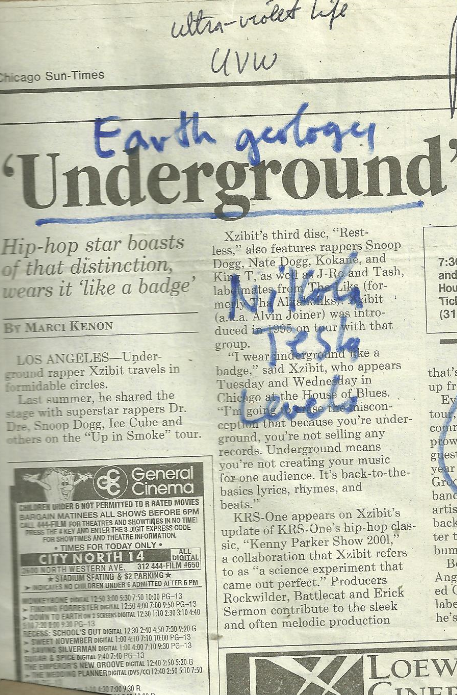 ultra-violet life
UVW
Chicago Sun-Times
Earth geology
'Underground'
Hip-hop star boasts
of that distinction,
wears it 'like a badge'
BY MARCI KENON
LOS ANGELES—Under-
ground rapper Xzibit travels in
formidable circles.
Last summer, he shared the
stage with superstar rappers Dr.
Dre, Snoop Dogg, Ice Cube and
others on the "Up in Smoke" tour.
General
Cinema
GCC
CHILDREN UNDER 6 NOT PERMITTED TO R RATED MOVIES
BARGAIN MATINEES ALL SHOWS BEFORE 6PM
CALL 444-FILM FOR THEATRES AND SHOWTIMES IN NO TIME!
PRESS THE # KEY AND ENTER THE 3 DIGIT EXPRESS CODE
FOR SHOWTIMES AND THEATRE INFORMATION.
• TIMES FOR TODAY ONLY •
CITY NORTH 14 ALL DIGITAL
2600 NORTH WESTERN AVE. 312 444-FILM #650
★ STADIUM SEATING & $2 PARKING ★
INDICATES NO CHILDREN UNDER 6 ADMITTED AFTER 6 PM
FINDING FORRESTER
DOWN TO EARTH
RECESS: SCHOOL'S OUT
SWEET NOVEMBER
SAVING SILVERMAN
SUGAR & SPICE
THE EMPEROR'S NEW GROOVE
THE WEDDING PLANNER
Xzibit's third disc, "Rest-
less," also features rappers Snoop
Dogg, Nate Dogg, Kokane, and
King T, as well as J-Ro and Tash,
labelmates from Tha Liks (for-
merly Tha Alkaholiks). Xzibit
(a.k.a. Alvin Joiner) was intro-
duced in 1995 on tour with that
group.
Nikola
Tesla
Levels
"I wear underground like a
badge," said Xzibit, who appears
Tuesday and Wednesday in
Chicago at the House of Blues.
"I'm going the miscon-
ception that because you're under-
ground, you're not selling any
records. Underground means
you're not creating your music
for one audience. It's back-to-the-
basics lyrics, rhymes, and
beats."
KRS-One appears on Xzibit's
update of KRS-One's hip-hop clas-
sic, "Kenny Parker Show 2001,"
a collaboration that Xzibit refers
to as "a science experiment that
came out perfect." Producers
Rockwilder, Battlecat and Erick
Sermon contribute to the sleek
and often melodic production
7:30
and
Hou
Tic
(31
that's
up fr
tour
grea
year
Gr
band
artis
back
ter t
bum
Ang
ed
labe
he's
LOEW
CINE